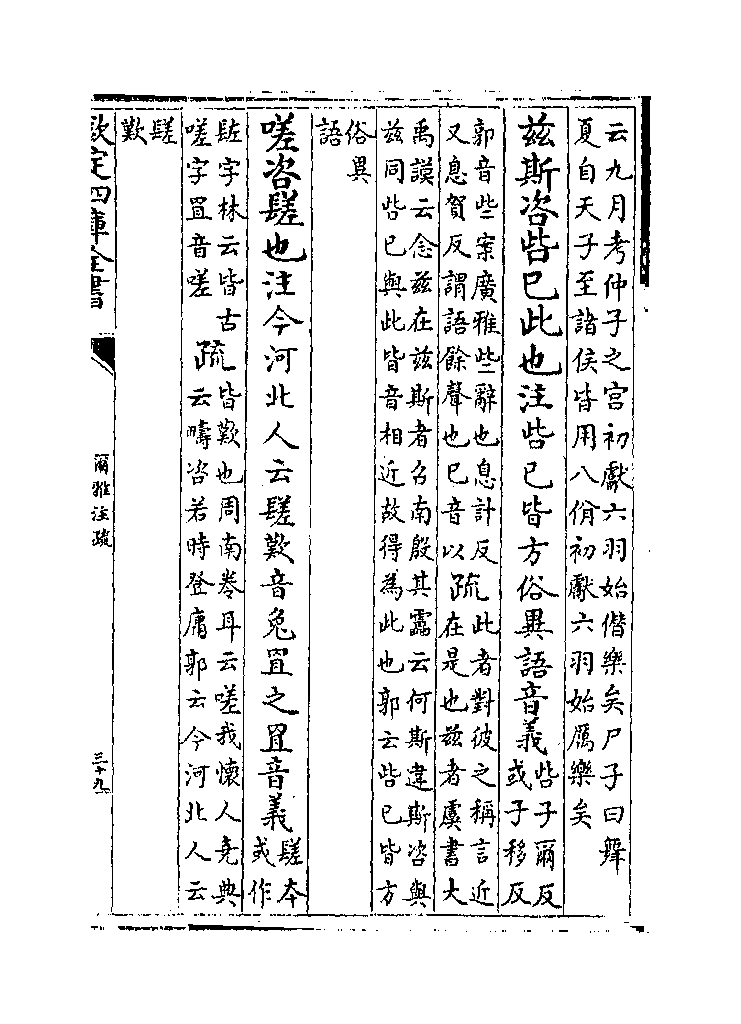 云九月考仲子之宮初獻六羽始僭樂矣尸子曰舞
夏自天子至諸侯皆用八佾初獻六羽始厲樂矣
兹斯咨呰已此也注呰已皆方俗異語音義
呰子爾反
或子移反
郭音些案廣雅些辭也息計反
又息賀反謂語餘聲也已音以
疏
此者對彼之稱言近
在是也兹者虞書大
禹謨云念兹在兹斯者召南殷其靁云何斯違斯咨與
兹同呰已與此皆音相近故得為此也郭云呰已皆方
俗異
語
嗟咨䰈也注今河北人云䰈歎音兔罝之罝音義
䰈本
或作
字林云皆古
嗟字罝音嗟
疏
皆歎也周南卷耳云嗟我懷人堯典
云疇咨若時登庸郭云今河北人云
䰈
歎
欽定四庫全書
爾雅注疏
三十九